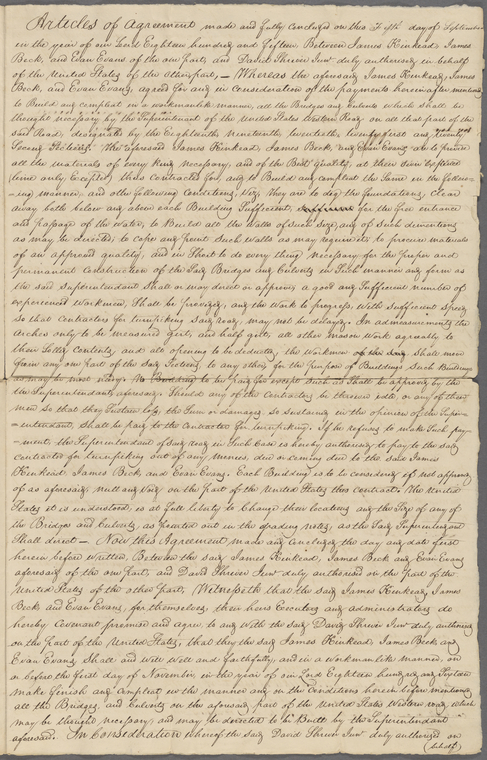 Articles of Agreement made and fully concluded on this Fifth day of September
in the year of our Lord Eighteen hundred and fifteen Between James Kinkead, James
Beck, and Evan Evans of the one part, and David Shriver Junr duly authorised in behalf
of the United States of the other part, — Whereas the aforesaid James Kinkead, James
Beck, and Evan Evans, agreed for and in consideration of the payments hereinafter mentioned
to Build and compleat in a workmanlike manner, all the Bridges and Culverts which shall be
thought necessary by the Superintendant of the United States Western Road on all that part of the
said Road, designated by the Eighteenth Nineteenth, twentieth, twenty first and twenty
Second Sections. The aforesaid James Kinkead, James Beck, and Evan Evans are to procure
all the materials of every kind necessary, and of the Best quality, at their own expence
lime only Excepted, thus contracted for, and to Build and compleat the same in the follow-
-ing manner, and on the following Conditions, Viz, they are to dig the foundations, clear
away both below and above each Building sufficient, for the free entrance
and passage of the water, to Build all the walls of such size, and of such dimentions
as may be directed, to cape and point such walls as may require it, to procure materials
of an approved quality, and in short to do every thing necessary for the proper and
permanent construction of the said Bridges and Culverts in such manner and form as
the said Superintendant shall or may direct or approve, a good and sufficient number of
experienced workmen, shall be provided, and the work to progress with sufficient speed
so that contractors for turnpiking said road, may not be delayed. In admeasurement the
arches only to be measured girt, and half girt, all other mason work agreeably to
their solid contents, and all opening to be deducted, the workmen shall move
from any one part of the said Sections, to any other, for the purpose of Building such Buildings
as may be most necessary. No Building to be paid for except such as shall be approved by the
Superintendant aforesaid. Should any of the Contractors be thrown idle, or any of their
men so that they sustain loss, the sum or damages so sustained in the opinion of the Superin-
-entendant, shall be paid to the contractor for turnpiking. If he refuses to make such pay-
-ment, the Superintendant of said road in such case is hereby authorised to pay to the said
contractor for turnpiking out of any monies, due or coming due to the said James
Kinkead James Beck and Evan Evans. Each Building is to be considered if not approved
of as aforesaid null and void on the part of the United States this contract. The United
States it is understood, is at full liberty to Change the locations and the size of any of
the Bridges and Culverts, as pointed out in the grading notes, as the said Superintendant
shall direct — Now this Agreement made and concluded the day and date first
herein before written, Between the said James Kinkead, James Beck and Evan Evans
aforesaid of the one part, and David Shriver Junr duly authorised on the part of the
United States of the other part, Witnesseth that the said James Kinkead, James
Beck and Evan Evans, for themselves, their heirs Executors and administrators do
hereby Covenant promise and agree, to and with the said David Shriver Junr duly authorised
on the part of the United States, that they the said James Kinkead James Beck and
Evan Evans shall and will well and faithfully, and in a workmanlike manner, on
or before the first day of November in the year of our Lord Eighteen hundred and sixteen
make finish and compleat in the manner and on the Conditions herein before mentioned
all the Bridges, and Culverts on the aforesaid part of the United States Western road which
may be thought necessary and may be directed to be Built by the Superintendant
aforesaid. In Consideration whereof the said David Shriver Junr duly authorised on
(behalf)